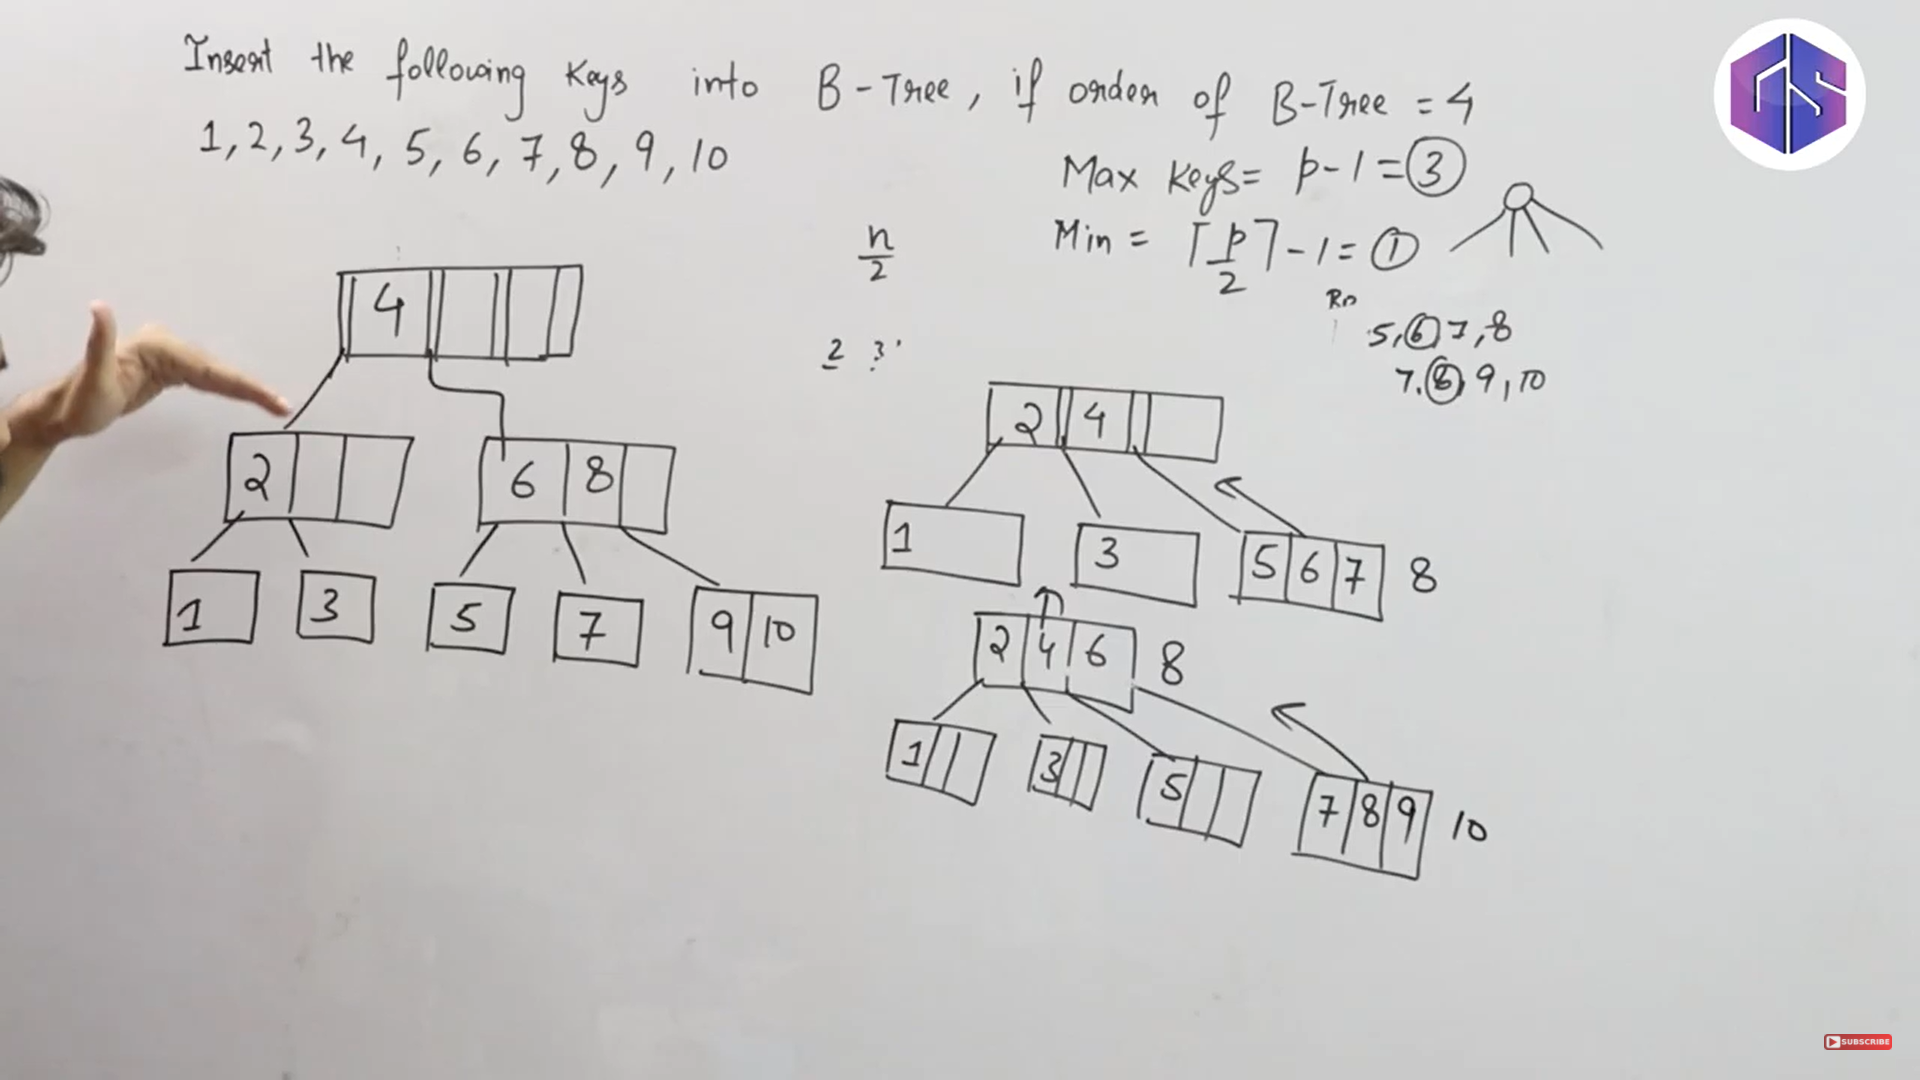 Insert the following Keys into B-Tree, if order of B-Tree = 4
1, 2, 3, 4, 5, 6, 7, 8, 9, 10
Max Keys = p-1 = 3
Min = ⌈p/2⌉ - 1 = 1
n/2
5, 6, 7, 8
7, 8, 9, 10
2 3
4
2
6 8
1
3
5
7
9 10
2 4
1
3
5 6 7 8
2 4 6 8
1
3
5
7 8 9 10
SUBSCRIBE